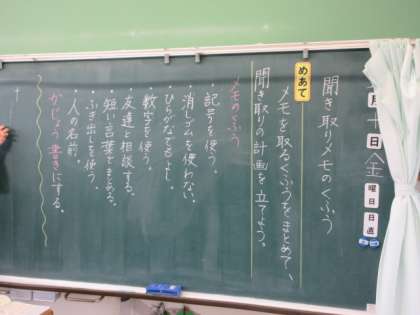 月十日金曜日日直
聞き取りメモのくふう
めあて
メモを取るくふうをまとめて、
聞き取りの計画を立てよう。
メモのくふう
・記号を使う。
・消しゴムを使わない。
・ひらがなでもよし。
・数字を使う。
・友達と相談する。
・短い言葉でまとめる。
・ふき出しを使う。
・人の名前。
かじょう書きにする。